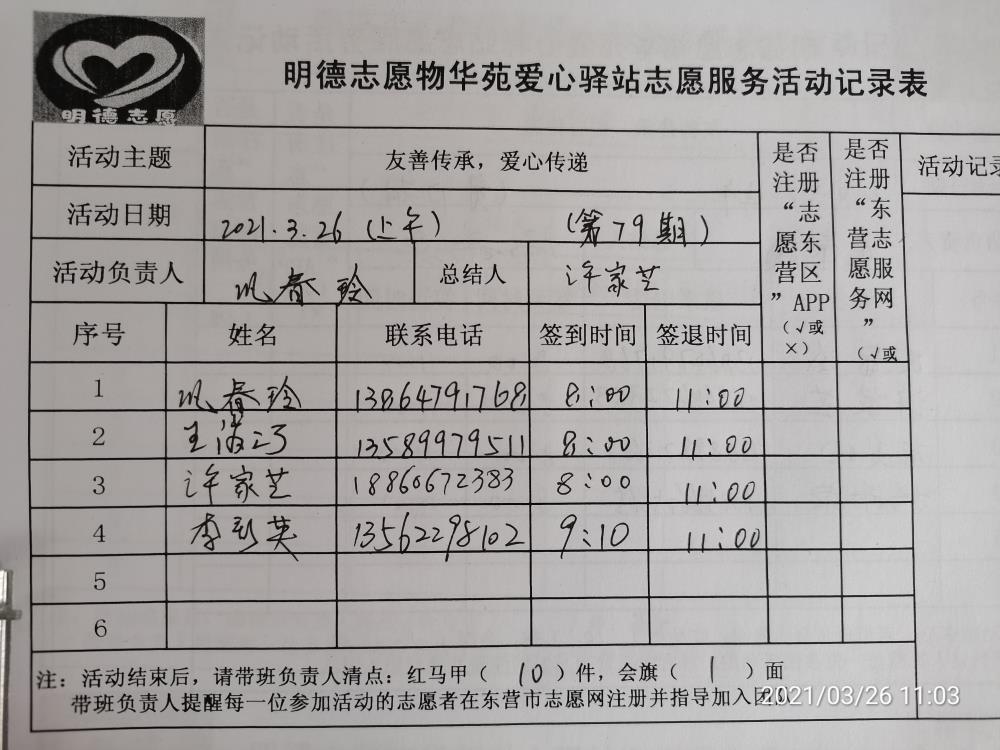 明德志愿
明德志愿物华苑爱心驿站志愿服务活动记录表
活动主题 友善传承，爱心传递
是否注册“志愿东营区”APP（√或×）
是否注册“东营志愿服务网”（√或
活动记录
活动日期 2021.3.26（上午） （第79期）
活动负责人 春玲 总结人 许家芝
序号 姓名 联系电话 签到时间 签退时间
1 春玲 13864791768 8:00 11:00
2 王 13589979511 8:00 11:00
3 许家芝 18860672383 8:00 11:00
4 李彩英 13562298102 9:10 11:00
5
6
注：活动结束后，请带班负责人清点：红马甲（10）件，会旗（1）面
带班负责人提醒每一位参加活动的志愿者在东营市志愿网注册并指导加入团队
2021/03/26 11:03